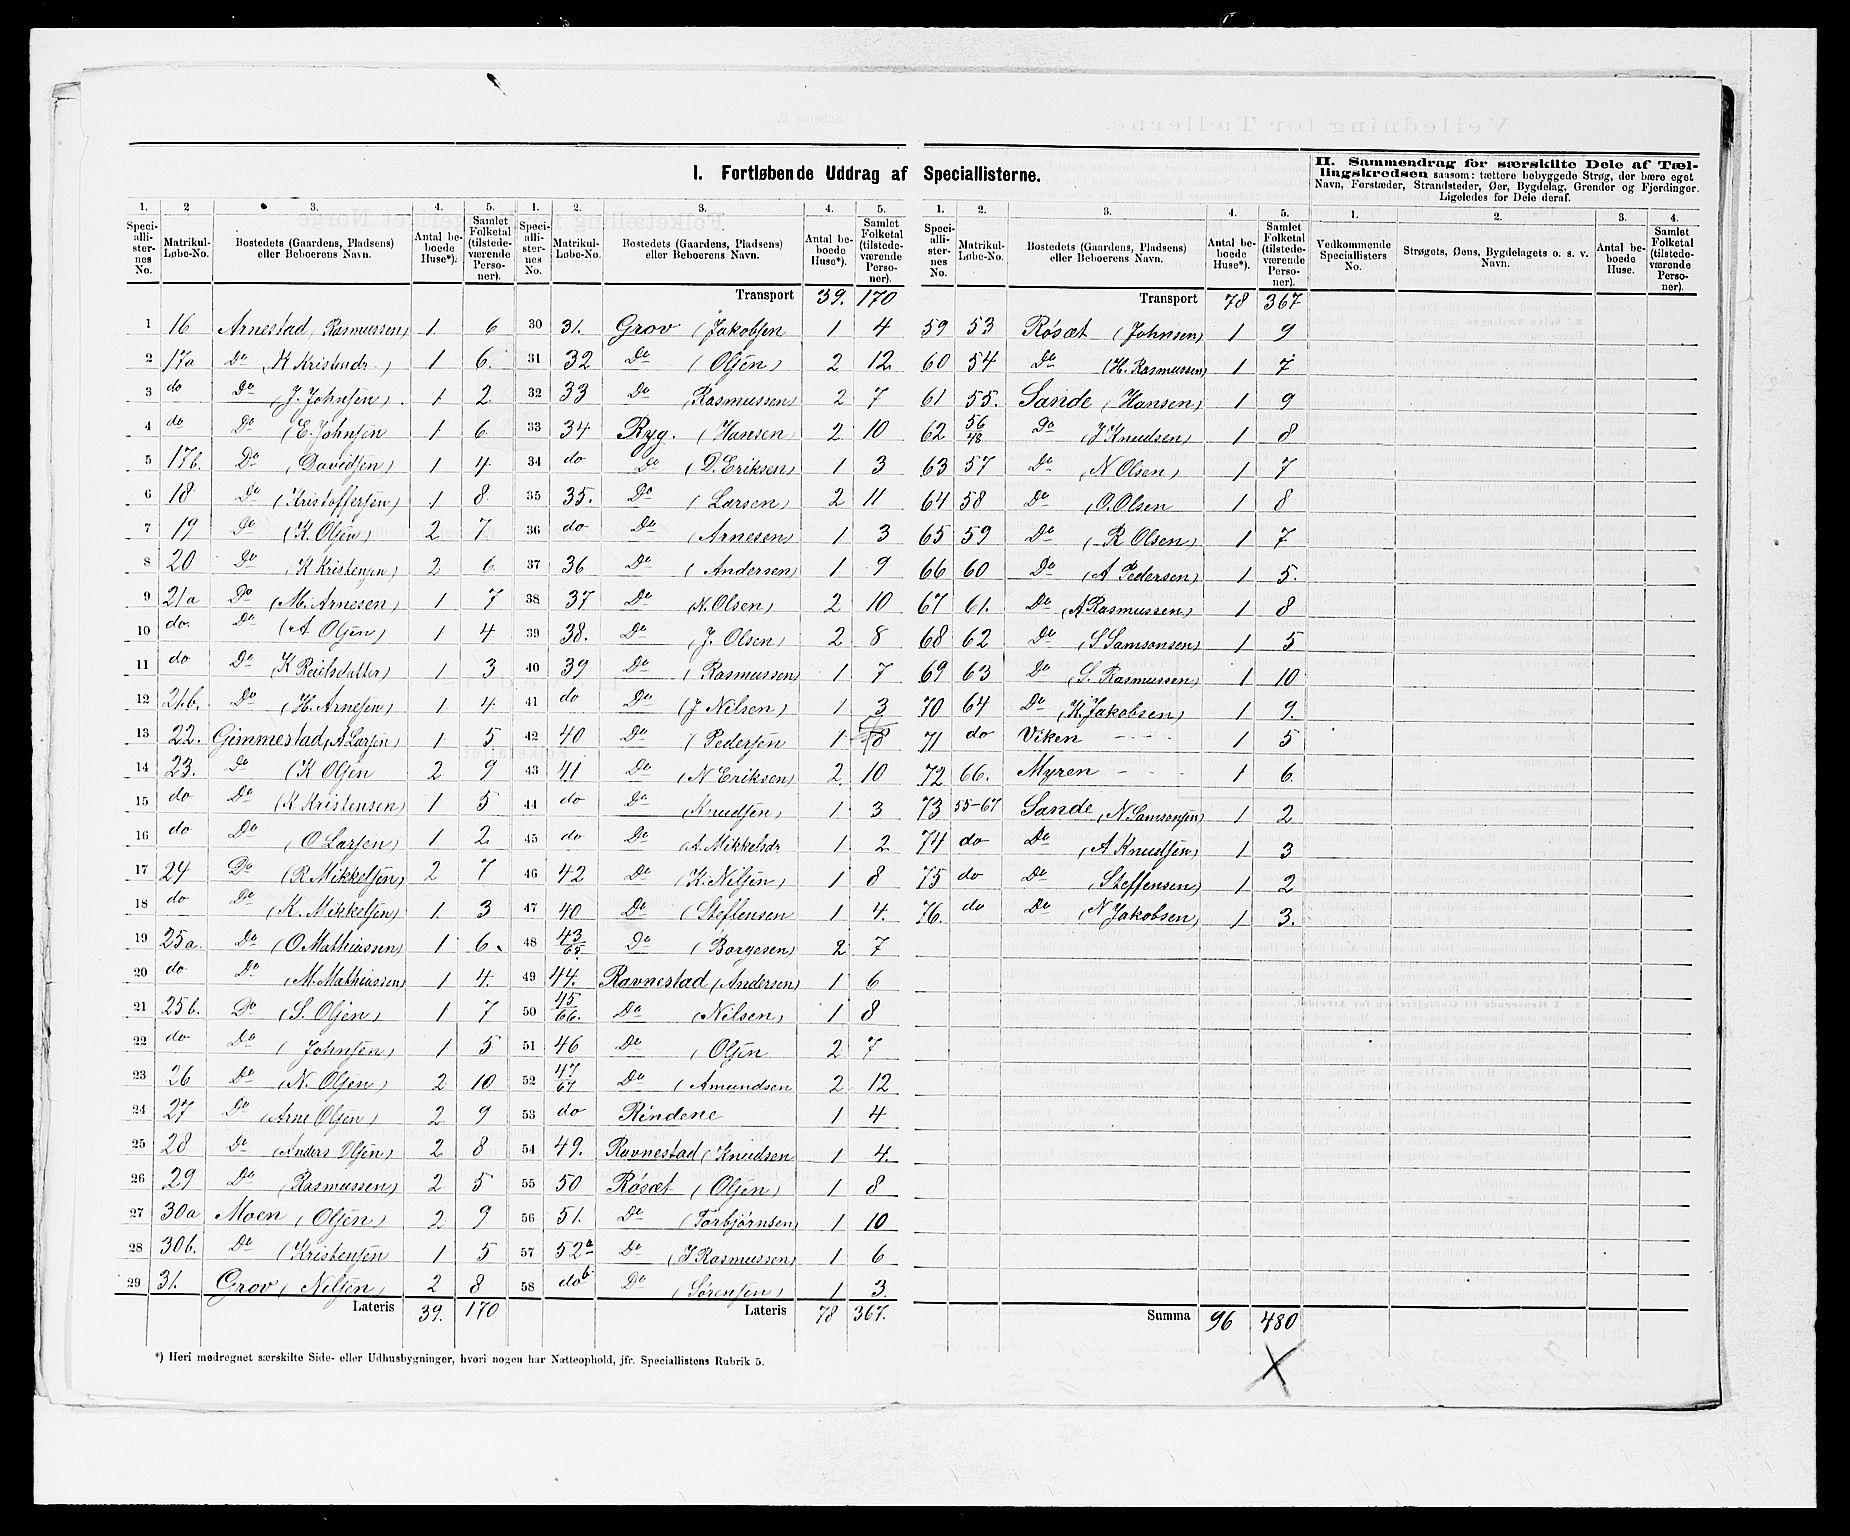 I. Fortløbende Uddrag af Speciallisterne.
II. Sammendrag for særskilte Dele af Tællingskredsen samsom: tættere bebyggede Strøg, der bære eget
Navn, Forstæder, Strandsteder, Øer, Bygdelag, Grender og Fjerdinger.
Ligeledes for Dele deraf.
1. 2 3. 4. 5. 1. 2. 3. 4. 5. 1. 2. 3. 4. 5. 1. 2. 3. 4.
Speciallisternes No. Matrikul-Løbe-No. Bostedets (Gaardens, Pladsens) eller Beboerens Navn. Antal beboede Huse*). Samlet Folketal (tilstedeværende Personer).
Speciallisternes No. Matrikul-Løbe-No. Bostedets (Gaardens, Pladsens) eller Beboerens Navn. Antal beboede Huse*). Samlet Folketal (tilstedeværende Personer).
Speciallisternes No. Matrikul-Løbe-No. Bostedets (Gaardens, Pladsens) eller Beboerens Navn. Antal beboede Huse*). Samlet Folketal (tilstedeværende Personer).
Vedkommende Speciallisters No. Strøgets, Øens, Bygdelagets o. s. v. Navn. Antal beboede Huse. Samlet Folketal (tilstedeværende Personer).
1 16 Arnestad (Rasmussen) 1 6
2 17a Do (K Kristendr.) 1 6.
3 do Do (J. Johnsen) 1 2.
4 do Do (E. Johnsen 1 6
5 17b. Do (Davidsen) 1 4
6 18 Do (Kristoffersen) 1 8
7 19 Do (K. Olsen) 2 7
8 20 Do (K Kristensen) 2 6
9 21a Do (M. Arnesen) 1 7
10 do. Do (A Olsen) 1 4
11 do Do (K Reielsdatter) 1 3
12 21.b. Do (H. Arnesen) 1 4
13 22. Gimmestad (A Larsen) 1 5
14 23. Do (K Olsen 2 9
15 do Do (K Kristensen) 1 5
16 do Do (O Larsen) 1 2
17 24 Do (R. Mikkelsen) 2 7
18 do Do (K. Mikkelsen) 1 3
19 25a. Do (O Mathiassen) 1 6.
20 do Do (M. Mathiassen) 1 4.
21 25b. Do (S. Olsen) 1 7
22 do Do (Johnsen) 1 5
23 26 Do (N. Olsen) 2 10
24 27 Do (Arne Olsen) 2 9
25 28 Do (Anders Olsen) 2 8
26 29 Do (Rasmussen) 2 5
27 30a Moen (Olsen) 2 9
28 30b. Do (Kristensen 1 5
29 31. Grov (Nilsen) 2 8
Lateris 39. 170
Transport 39. 170
30 31. Grov (Jakobsen 1 4
31 32 Do (Olsen) 2 12.
32 33 Do Rasmussen) 2 7
33 34 Ryg. (Hansen) 2 10
34 do Do (D. Eriksen) 1 3
35 35. Do (Larsen) 2 11
36 do Do (Arnesen) 1 3
37 36 Do (Andersen) 1 9
38 37 Do (N. Olsen) 2 10
39 38. Do (J. Olsen) 2 8
40 39 Do (Rasmussen) 1 7
41 do Do (J Nilsen) 1 3
42 40 Do (Pedersen 1 8
43 41 Do (N Eriksen) 2. 10
44 do Do (Knudsen) 1 3
45 do Do (A. Mikkelsdr 1 2
46 42 Do (K. Nilsen) 1 8
47 40 Do (Steffensen 1 4.
48 43/65 Do (Borgesen) 2 7
49 44. Ravnestad (Andersen) 1 6
50 45/66. Do (Nilsen) 1 8
51 46 Do (Olsen 2 7
52 47/67 Do (Amundsen 2 12
53 do Rindene 1 4
54 49. Ravnestad (Knudsen 1 4.
55 50 Røsæt (Olsen) 1 8
56 51. Do (Torbjørnsen) 1 10
57 52a Do (J Rasmussen) 1 6
58 do b Do (Sørensen) 1 3.
Lateris 78 367.
Transport 78 367
59 53 Røsæt (Johnsen) 1 9
60 54 Do (H. Rasmussen) 1 7
61 55. Sande (Hansen) 1 9
62 56/48 Do (J Knudsen) 1 8
63 57 Do (N Olsen) 1 7
64 58 Do (O. Olsen 1 8
65 59 Do (R Olsen) 1 7
66 60 Do (A Pedersen) 1 5.
67 61. Do (A Rasmussen) 1 8
68 62 Do (S Samsonsen) 1 5
69 63 Do (S. Rasmussen) 1 10
70 64 Do (K. Jakobsen) 1 9.
71 do Viken 1 5
72 66. Myren 1 6.
73 55-67 Sande (N Samsonsen) 1 2
74 do Do (A Knudsen) 1 3
75 do Do (Steffensen) 1 2
76. do Do (N Jakobsen) 1 3.
Summa 96 480
*) Heri medregnet særskilte Side- eller Udhusbygninger, hvori nogen har Natteophold, jfr. Speciallistens Rubrik 5.